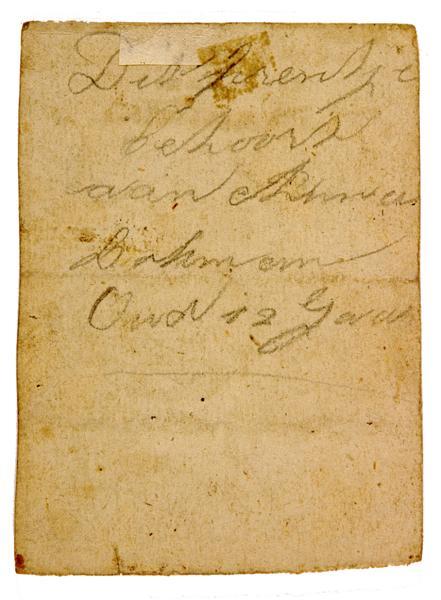 Dit prentje
behoort
aan Anna
Dohmen
Oud 12 Jaar